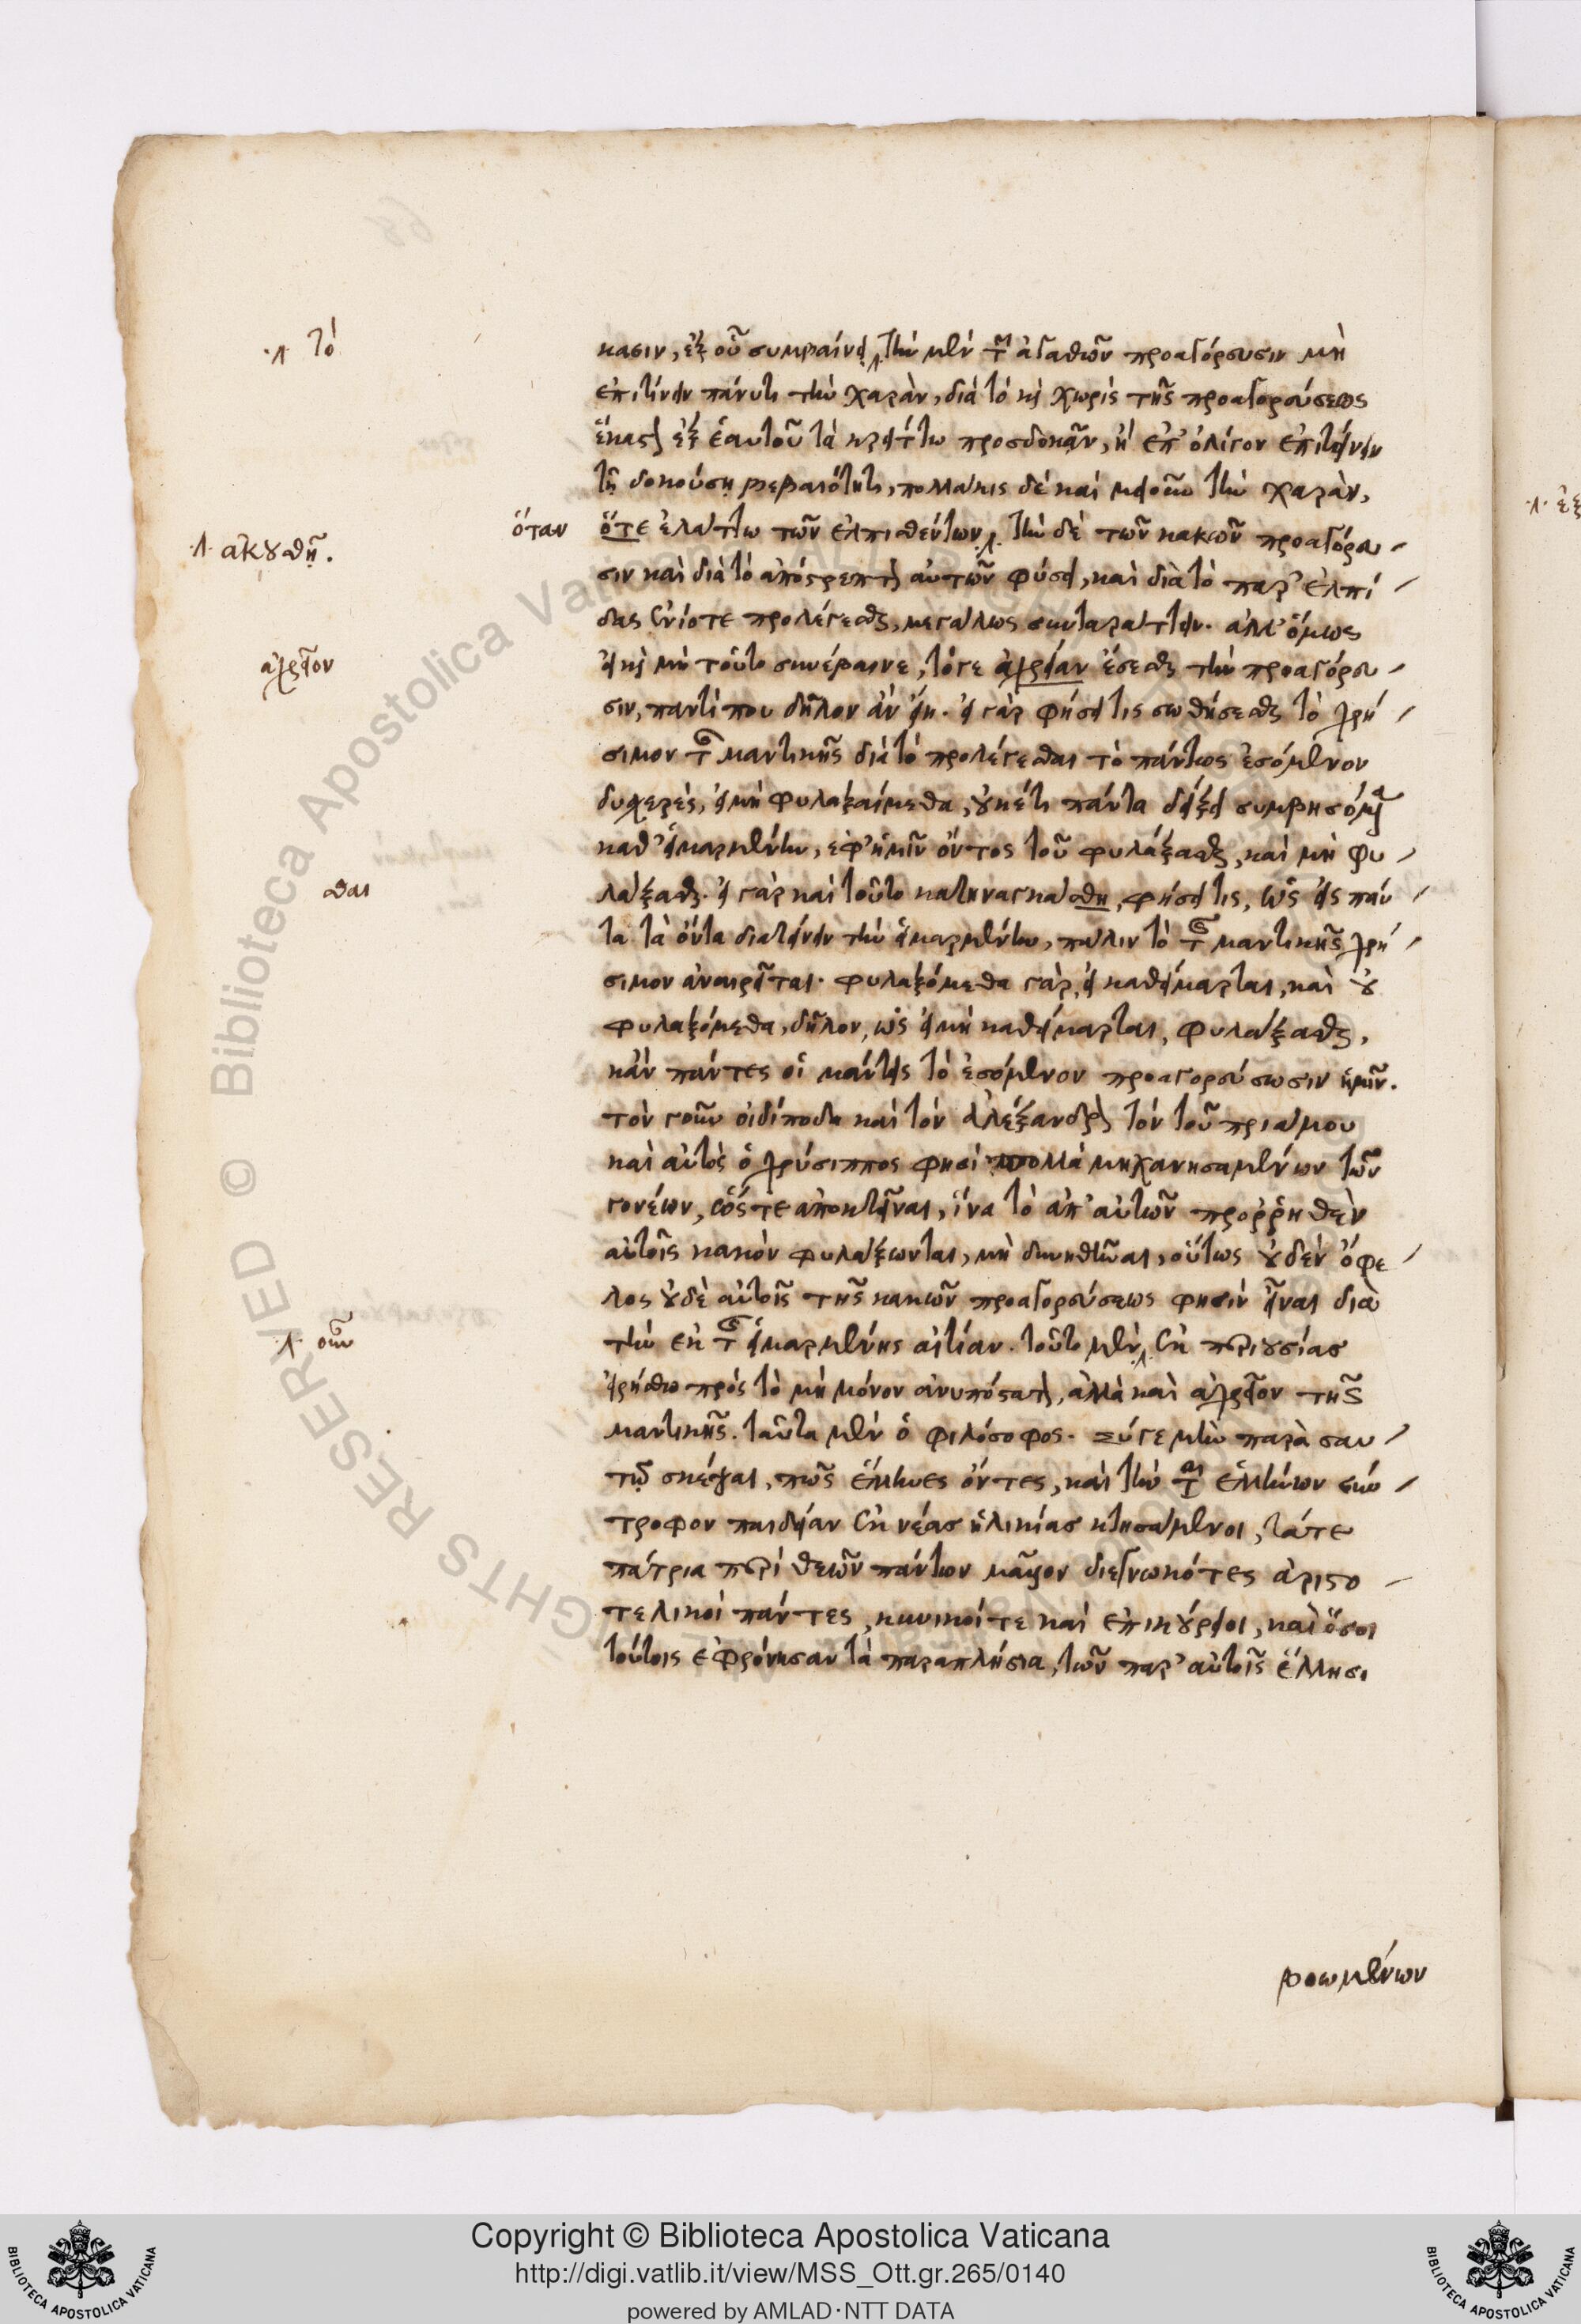 ·λ· τὸ
κασιν, ἐξ οὗ συμβαίνει τὴν μὲν τῶν ἀγαθῶν προαγόρευσιν μὴ
ἐπιτείνειν πάντη τὴν χαρὰν, διὰ τὸ καὶ χωρὶς τῆς προαγορεύσεως
ἕκαστον ἐξ ἑαυτοῦ τὰ κρείττω προσδοκᾶν, ἢ ἐπ' ὀλίγον ἐπιτείνειν
τῇ δοκούσῃ βεβαιότητι, πολλάκις δὲ καὶ μειοῦν τὴν χαρὰν,
ὅταν ὅτε ἐλάττω τῶν ἐλπισθέντων, τὴν δὲ τῶν κακῶν προαγόρευ
·λ· ἀκουσθῇ.
σιν καὶ διὰ τὸ ἀπόστρεπτον αὐτῶν φύσει, καὶ διὰ τὸ παρ' ἐλπί
δας ἐνίοτε προλέγεσθαι, μεγάλως συνταράττειν. ἀλλ' ὅμως
ἀχρεῖον
εἰ καὶ μὴ τοῦτο συνέβαινε, τό γε ἀχρείαν ἔσεσθαι τὴν προαγόρευ
σιν, παντί που δῆλον ἂν εἴη. εἰ γάρ φήσει τις σωθήσεσθαι τὸ χρή
σιμον τῆς μαντικῆς διὰ τὸ προλέγεσθαι τὸ πάντως ἐσόμενον
δυσχερές, εἰ μὴ φυλαξαίμεθα, οὐκέτι πάντα δείξει συμβησόμενα
καθ' εἱμαρμένην, ἐφ' ἡμῖν ὄντος τοῦ φυλάξασθαι, καὶ μὴ φυ
λάξασθαι. εἰ γὰρ καὶ τοῦτο κατηναγκάσθη, φήσει τις, ὡς εἰς πάν
σθαι
τα τὰ ὄντα διατείνειν τὴν εἱμαρμένην, πάλιν τὸ τῆς μαντικῆς χρή
σιμον ἀναιρεῖται. φυλαξόμεθα γὰρ, εἰ καθείμαρται, καὶ οὐ
φυλαξόμεθα, δῆλον, ὡς εἰ μὴ καθείμαρται, φυλάξασθαι,
κἂν πάντες οἱ μάντεις τὸ ἐσόμενον προαγορεύσωσιν ἡμῖν.
τὸν γοῦν οἰδίποδα καὶ τὸν ἀλέξανδρον τὸν τοῦ πριάμου
καὶ αὐτὸς ὁ χρύσιππος φησὶ πολλὰ μηχανησαμένων τῶν
γονέων, ὥστε ἀποκτεῖναι, ἵνα τὸ ἀπ' αὐτῶν προρρηθὲν
αὐτοῖς κακὸν φυλάξωνται, μὴ δυνηθῶσαι, οὕτως οὐδὲν ὄφε
λος οὐδὲ αὐτοῖς τῆς κακῶν προαγορεύσεως φησὶν εἶναι διὰ
τὴν ἐκ τῆς εἱμαρμένης αἰτίαν. τοῦτο μὲν ἐκ περιουσίας
·λ· οὖν
εἰρήσθω πρὸς τὸ μὴ μόνον ἀνυπόστατον, ἀλλὰ καὶ ἀχρεῖον τῆς
μαντικῆς. ταῦτα μὲν ὁ φιλόσοφος. σύ γε μὴν παρὰ σαυ
τῷ σκέψαι, πῶς ἕλληνες ὄντες, καὶ τὴν τῶν ἑλλήνων σύν
τροφον παιδείαν ἐκ νέας ἡλικίας κτησάμενοι, τά τε
πάτρια περὶ θεῶν πάντων μᾶλλον διεγνωκότες ἀριστο
τελικοὶ πάντες, κυνικοί τε καὶ ἐπικούρειοι, καὶ ὅσοι
τούτοις ἐφρόνησαν τὰ παραπλήσια, τῶν παρ' αὐτοῖς ἕλλησι
βοωμένων
Copyright © Biblioteca Apostolica Vaticana
http://digi.vatlib.it/view/MSS_Ott.gr.265/0140
powered by AMLAD·NTT DATA